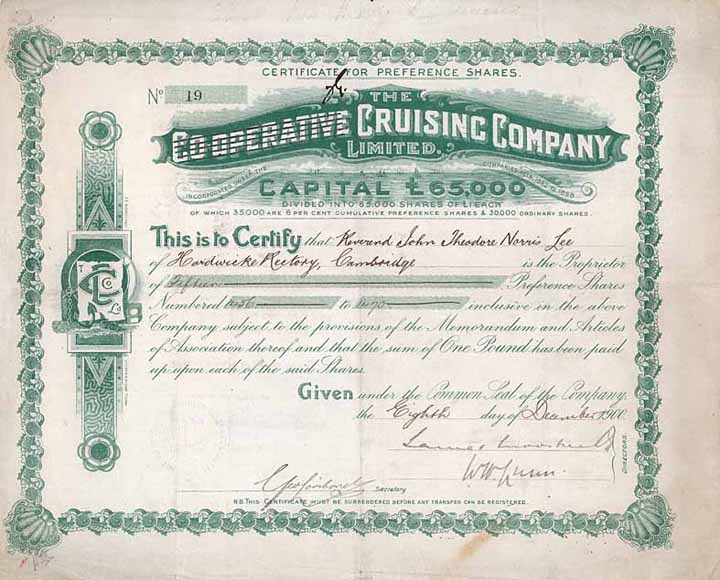 CERTIFICATE FOR PREFERENCE SHARES.
No 19
THE
CO-OPERATIVE CRUISING COMPANY
LIMITED.
INCORPORATED UNDER THE COMPANIES ACTS, 1862 TO 1898.
CAPITAL £65,000
DIVIDED INTO 65,000 SHARES OF £1 EACH
OF WHICH 35,000 ARE 6 PER CENT CUMULATIVE PREFERENCE SHARES & 30,000 ORDINARY SHARES.
This is to Certify that Reverend John Theodore Norris Lee
of Hardwicke Rectory, Cambridge is the Proprietor
of Fifteen Preference Shares
Numbered to inclusive in the above
Company subject to the provisions of the Memorandum and Articles
of Association thereof and that the sum of One Pound has been paid
up upon each of the said Shares.
Given under the Common Seal of the Company,
the Eighth day of December 1900.
DIRECTORS.
Secretary
N.B. THIS CERTIFICATE MUST BE SURRENDERED BEFORE ANY TRANSFER CAN BE REGISTERED.